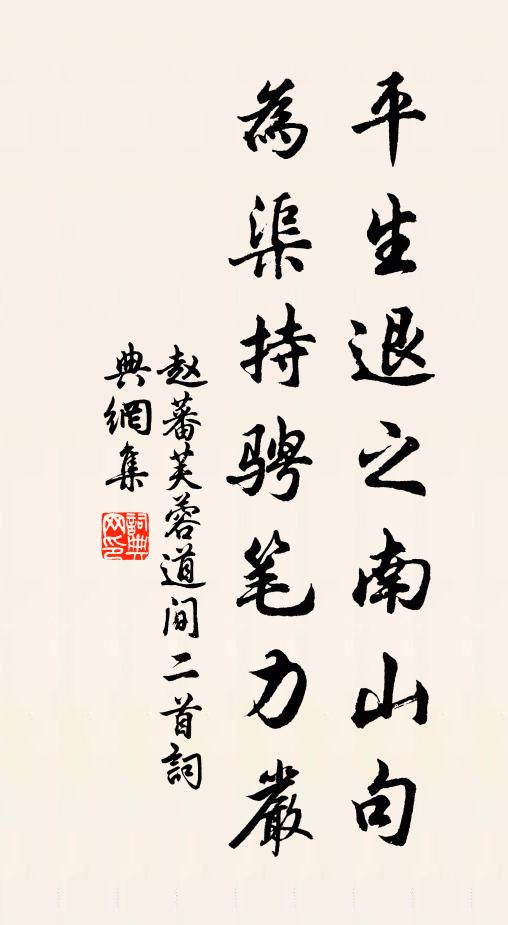 平生退之南山句
為渠持骋笔力嚴
赵蕃芙蓉道间二首詞
典網集
詞典
网印